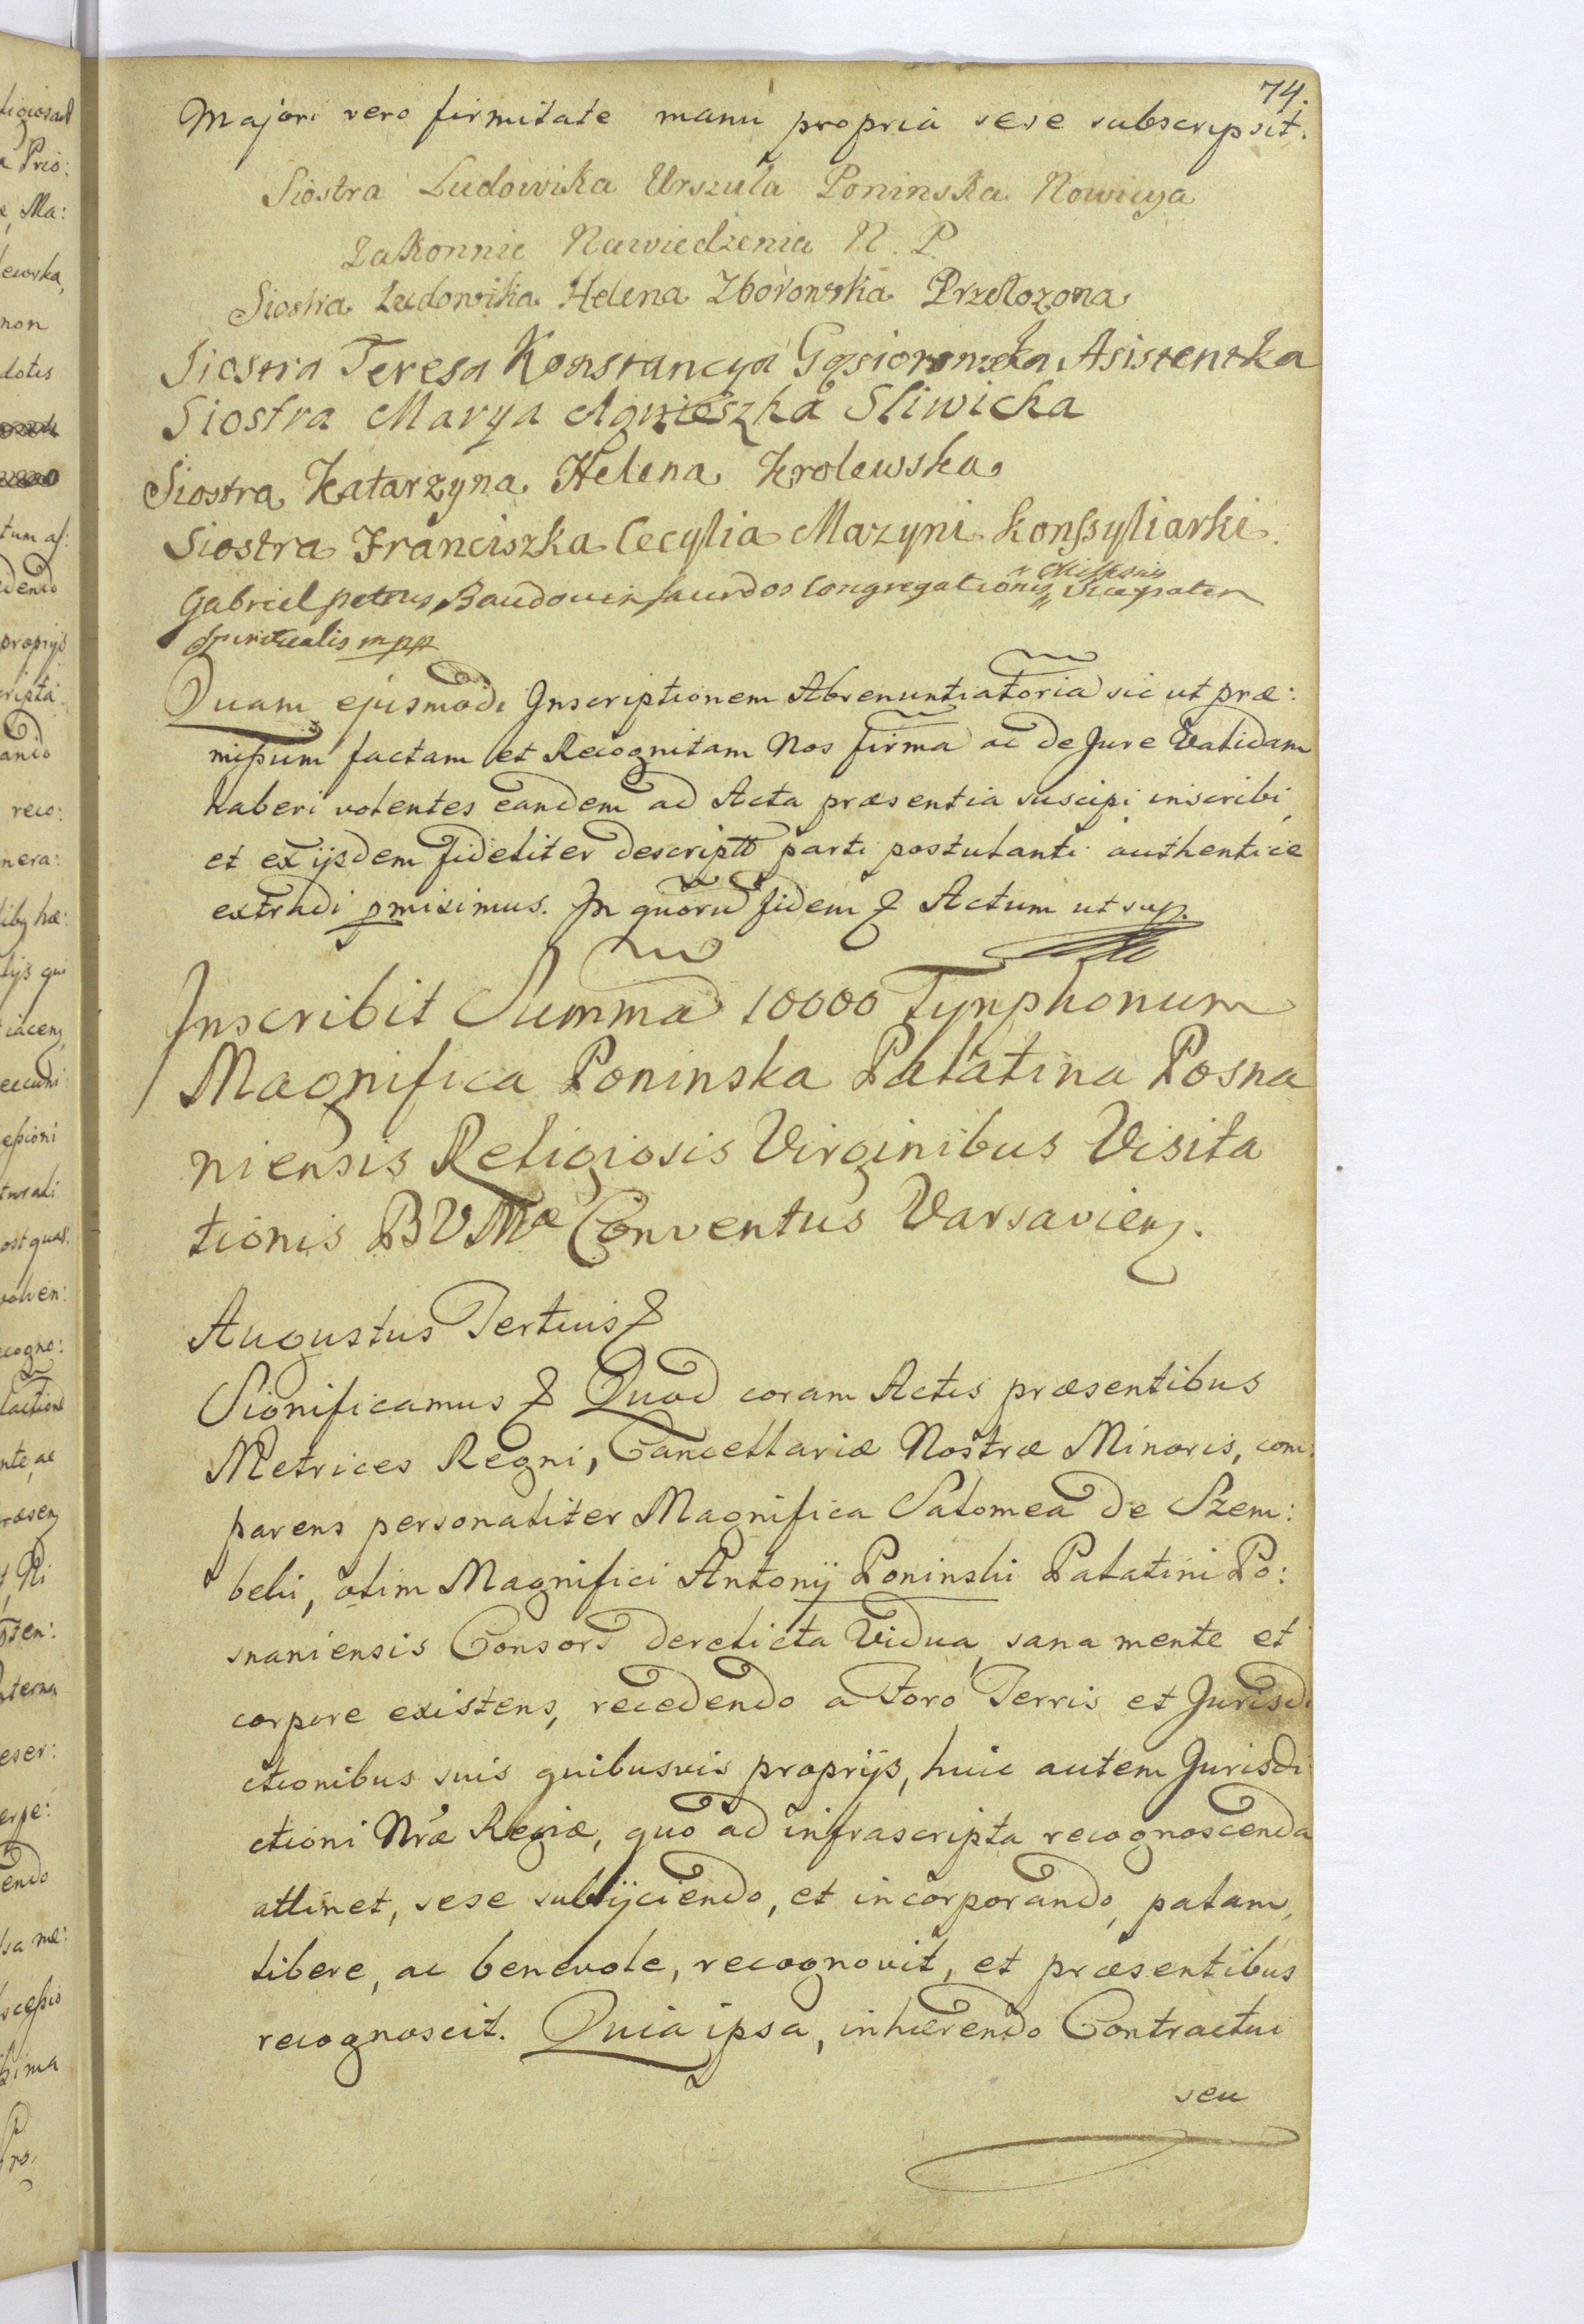 74.
Majori vero firmitate manu propria sese subscripsit.
Siostra Ludowika Urszula Poninska Nowicya
Zakonnic Nawiedzenia N. P.
Siostra Ludowika Helena Zborowska Przełozona
Siostra Teresa Konstancya Gąsiorowska Asistentka
Siostra Marya Agnieszka Sliwicka
Siostra Katarzyna Helena Krolewska
Siostra Franciszka Cecylia Mazyni Konssyliarki.
Missionis
Gabriel Petrus Baudouin sacerdos Congregationis Vice pater
Spiritualis mpp
Quam ejusmodi Inscriptionem Abrenuntiatoria sic ut præ:
mißum factam et Recognitam Nos firma ac de Jure Validam
haberi volentes eandem ad Acta præsentia suscipi inscribi,
et ex ijsdem fideliter descriptã parti postulanti authentice
extradi pmisimus. In quoru fidem & Actum ut sup.
Inscribit Summa 10000 Tynphonum
Magnifica Poninska Palatina Posna
niensis Religiosis Virginibus Visita
tionis BVMæ Conventus Varsavien.
Augustus Tertius &
Significamus & Quod coram Actis præsentibus
Metrices Regni, Cancellariæ Nostræ Minoris, com:
parens personaliter Magnifica Salomea de Szem:
beki, olim Magnifici Antonij Poninski Palatini Po:
snaniensis Consors derelicta Vidua, sana mente et
corpore existens, recedendo a Foro Terris et Jurisdi
ctionibus suis quibusvis proprijs, huic autem Jurisdi
ctioni Nræ Regiæ, quo ad infrascripta recognoscenda
attinet, sese subijciendo, et incorporando, palam,
libere, ac benevole, recognovit, et præsentibus
recognoscit. Quia ipsa, inhærendo Contractui
seu